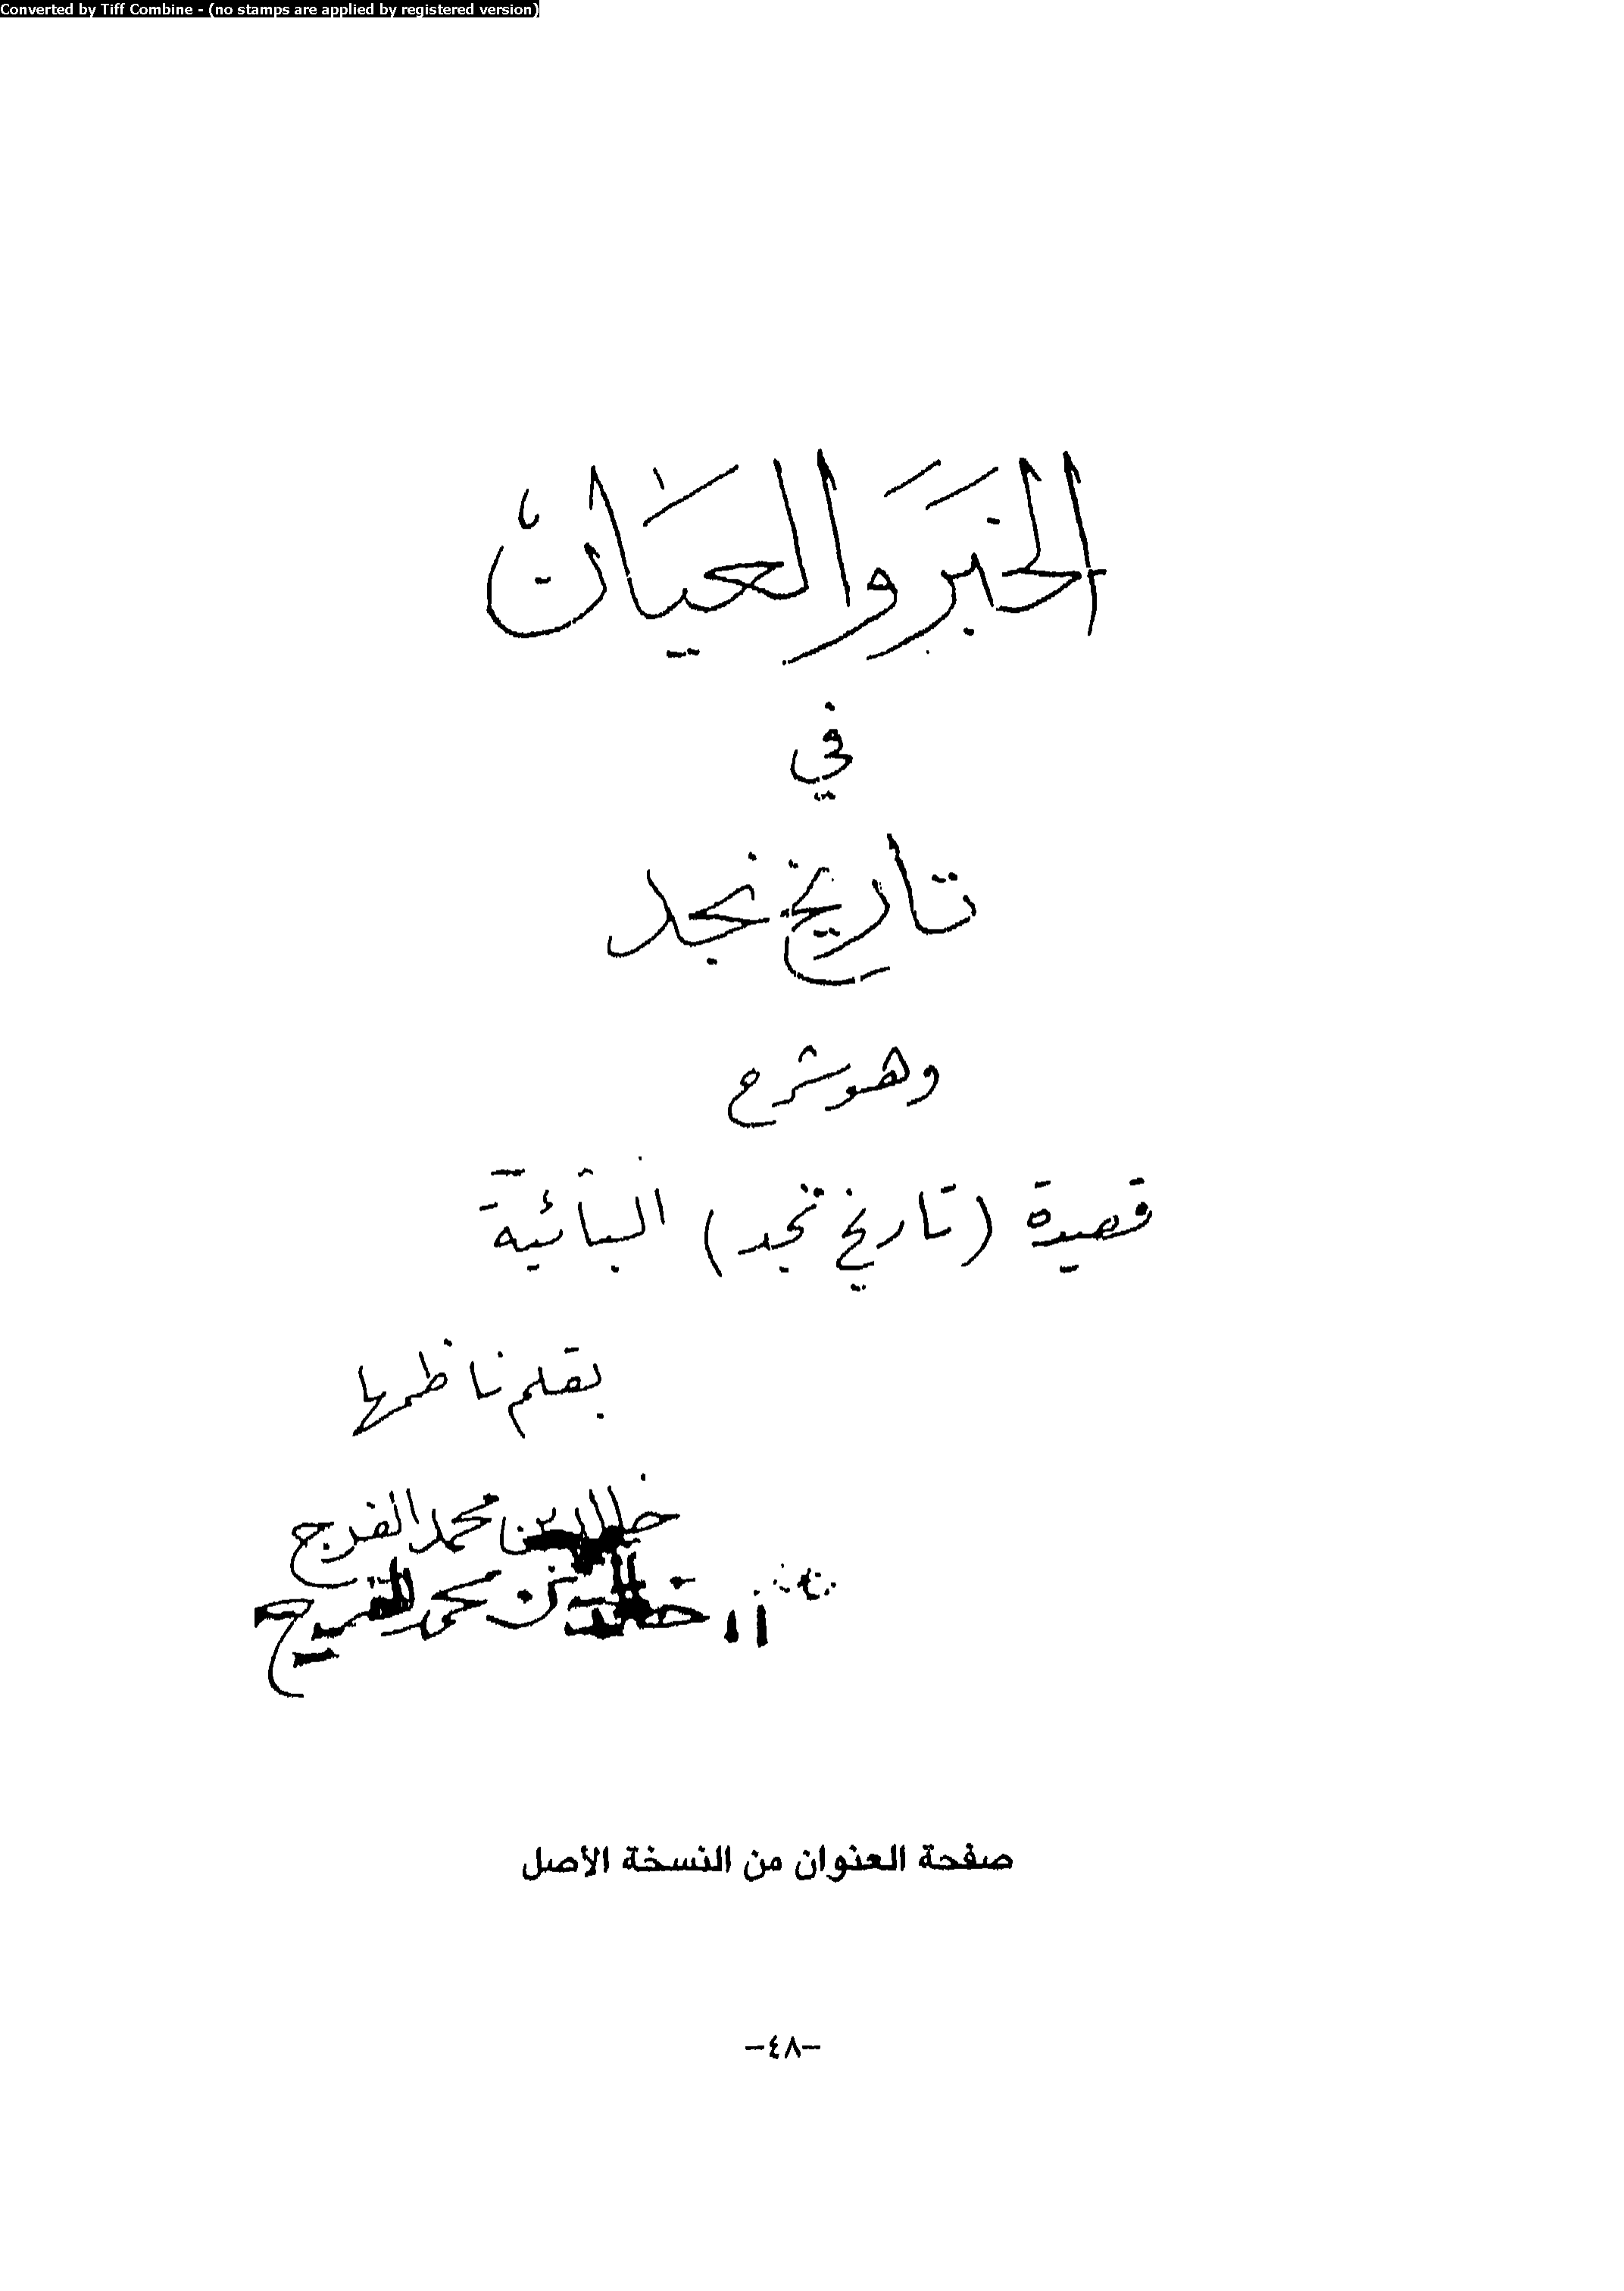 Converted by Tiff Combine - (no stamps are applied by registered version)
الخبَر وَالعيَان
في
تاريخ نجد
وهو شرح
قصيدة (تاريخ نجد) البائية
بقلم ناظمها
خالد بن محمد الفرج
خالد بن محمد الفرج
صفحة العنوان من النسخة الأصل
-٤٨-